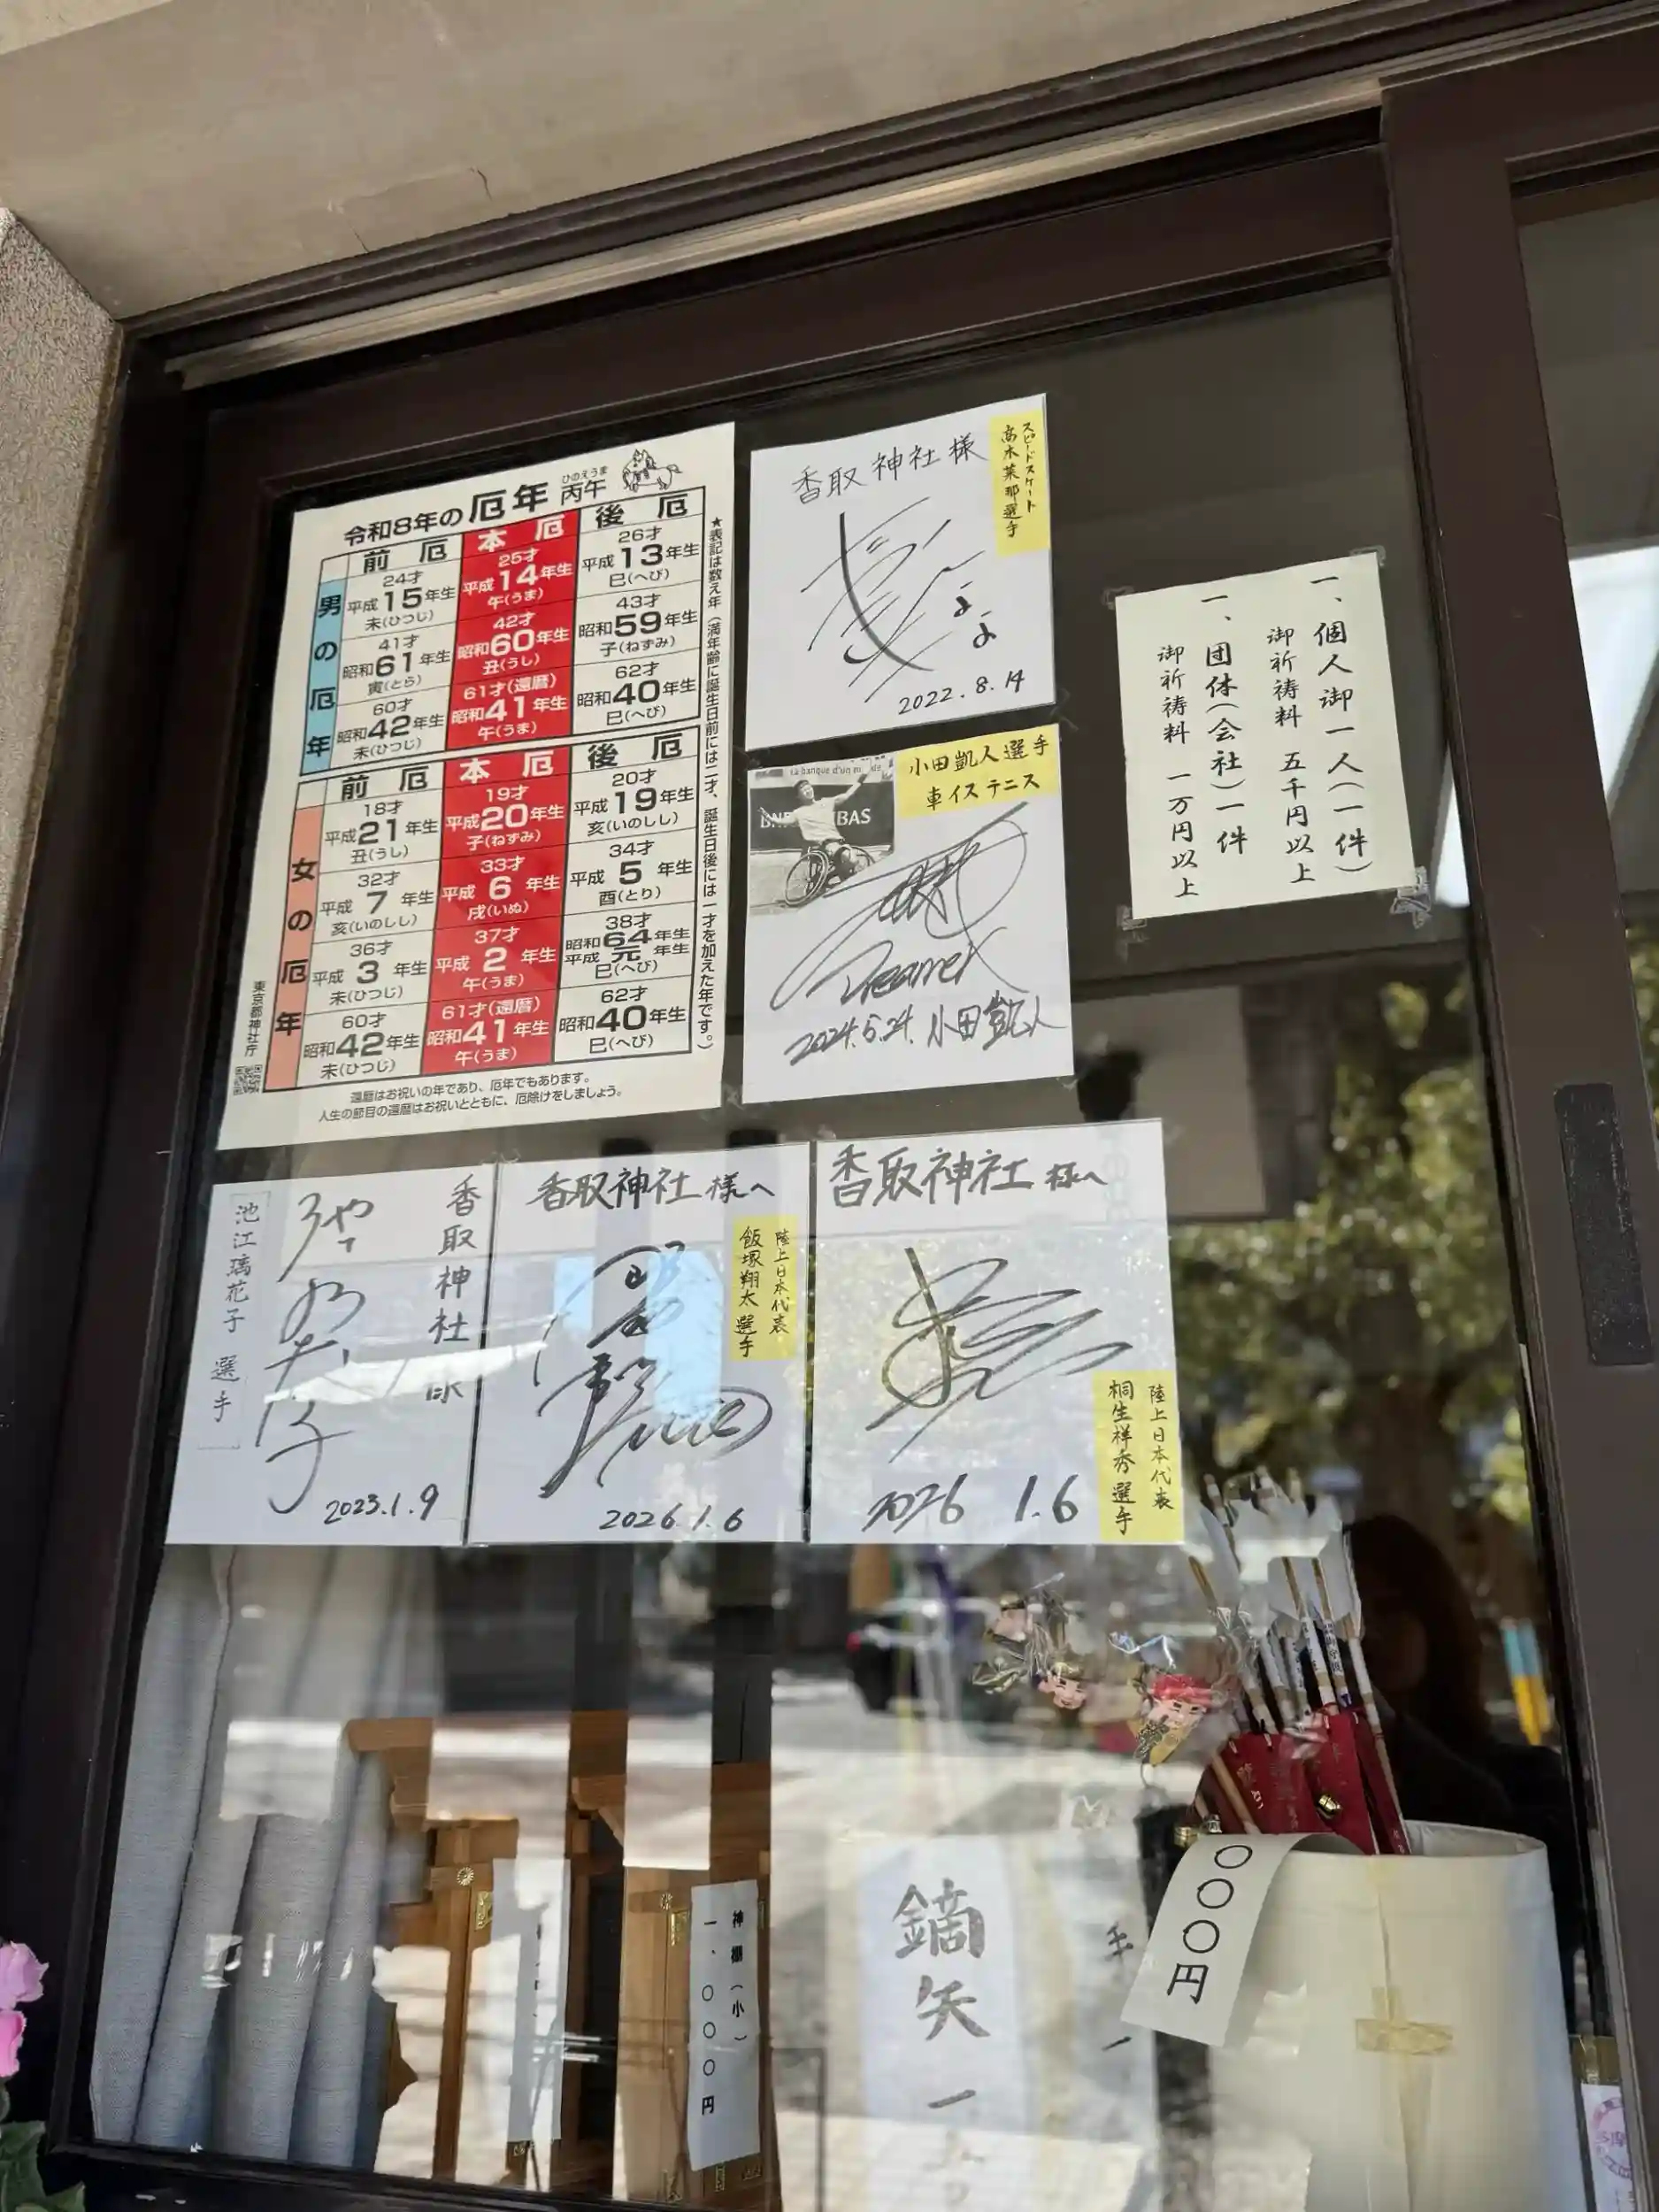 令和8年の厄年 丙午
ひのえうま
男の厄年
前厄
本厄
後厄
24才
平成15年生
未(ひつじ)
25才
平成14年生
午(うま)
26才
平成13年生
巳(へび)
41才
昭和61年生
寅(とら)
42才
昭和60年生
丑(うし)
43才
昭和59年生
子(ねずみ)
60才
昭和42年生
未(ひつじ)
61才(還暦)
昭和41年生
午(うま)
62才
昭和40年生
巳(へび)
女の厄年
前厄
本厄
後厄
18才
平成21年生
丑(うし)
19才
平成20年生
子(ねずみ)
20才
平成19年生
亥(いのしし)
32才
平成7年生
亥(いのしし)
33才
平成6年生
戌(いぬ)
34才
平成5年生
酉(とり)
36才
平成3年生
未(ひつじ)
37才
平成2年生
午(うま)
38才
昭和64年生
平成元年生
巳(へび)
60才
昭和42年生
未(ひつじ)
61才(還暦)
昭和41年生
午(うま)
62才
昭和40年生
巳(へび)
★表記は数え年(満年齢に誕生日前には二才、誕生日後には一才を加えた年です。)
東京都神社庁
還暦はお祝いの年であり、厄年でもあります。
人生の節目の還暦はお祝いとともに、厄除けをしましょう。
香取神社様
スピードスケート
高木菜那選手
2022.8.14
小田凱人選手
車イステニス
la banque d'un
Dreamer
2024.5.24. 小田凱人
一、個人御一人(一件)
御祈祷料 五千円以上
一、団体(会社)一件
御祈祷料 一万円以上
香取神社様
池江璃花子 選手
2023.1.9
香取神社様へ
陸上日本代表
飯塚翔太選手
2026.1.6
香取神社様へ
陸上日本代表
桐生祥秀選手
2026 1.6
神棚(小)
一、〇〇〇円
鏑矢一
〇〇〇円